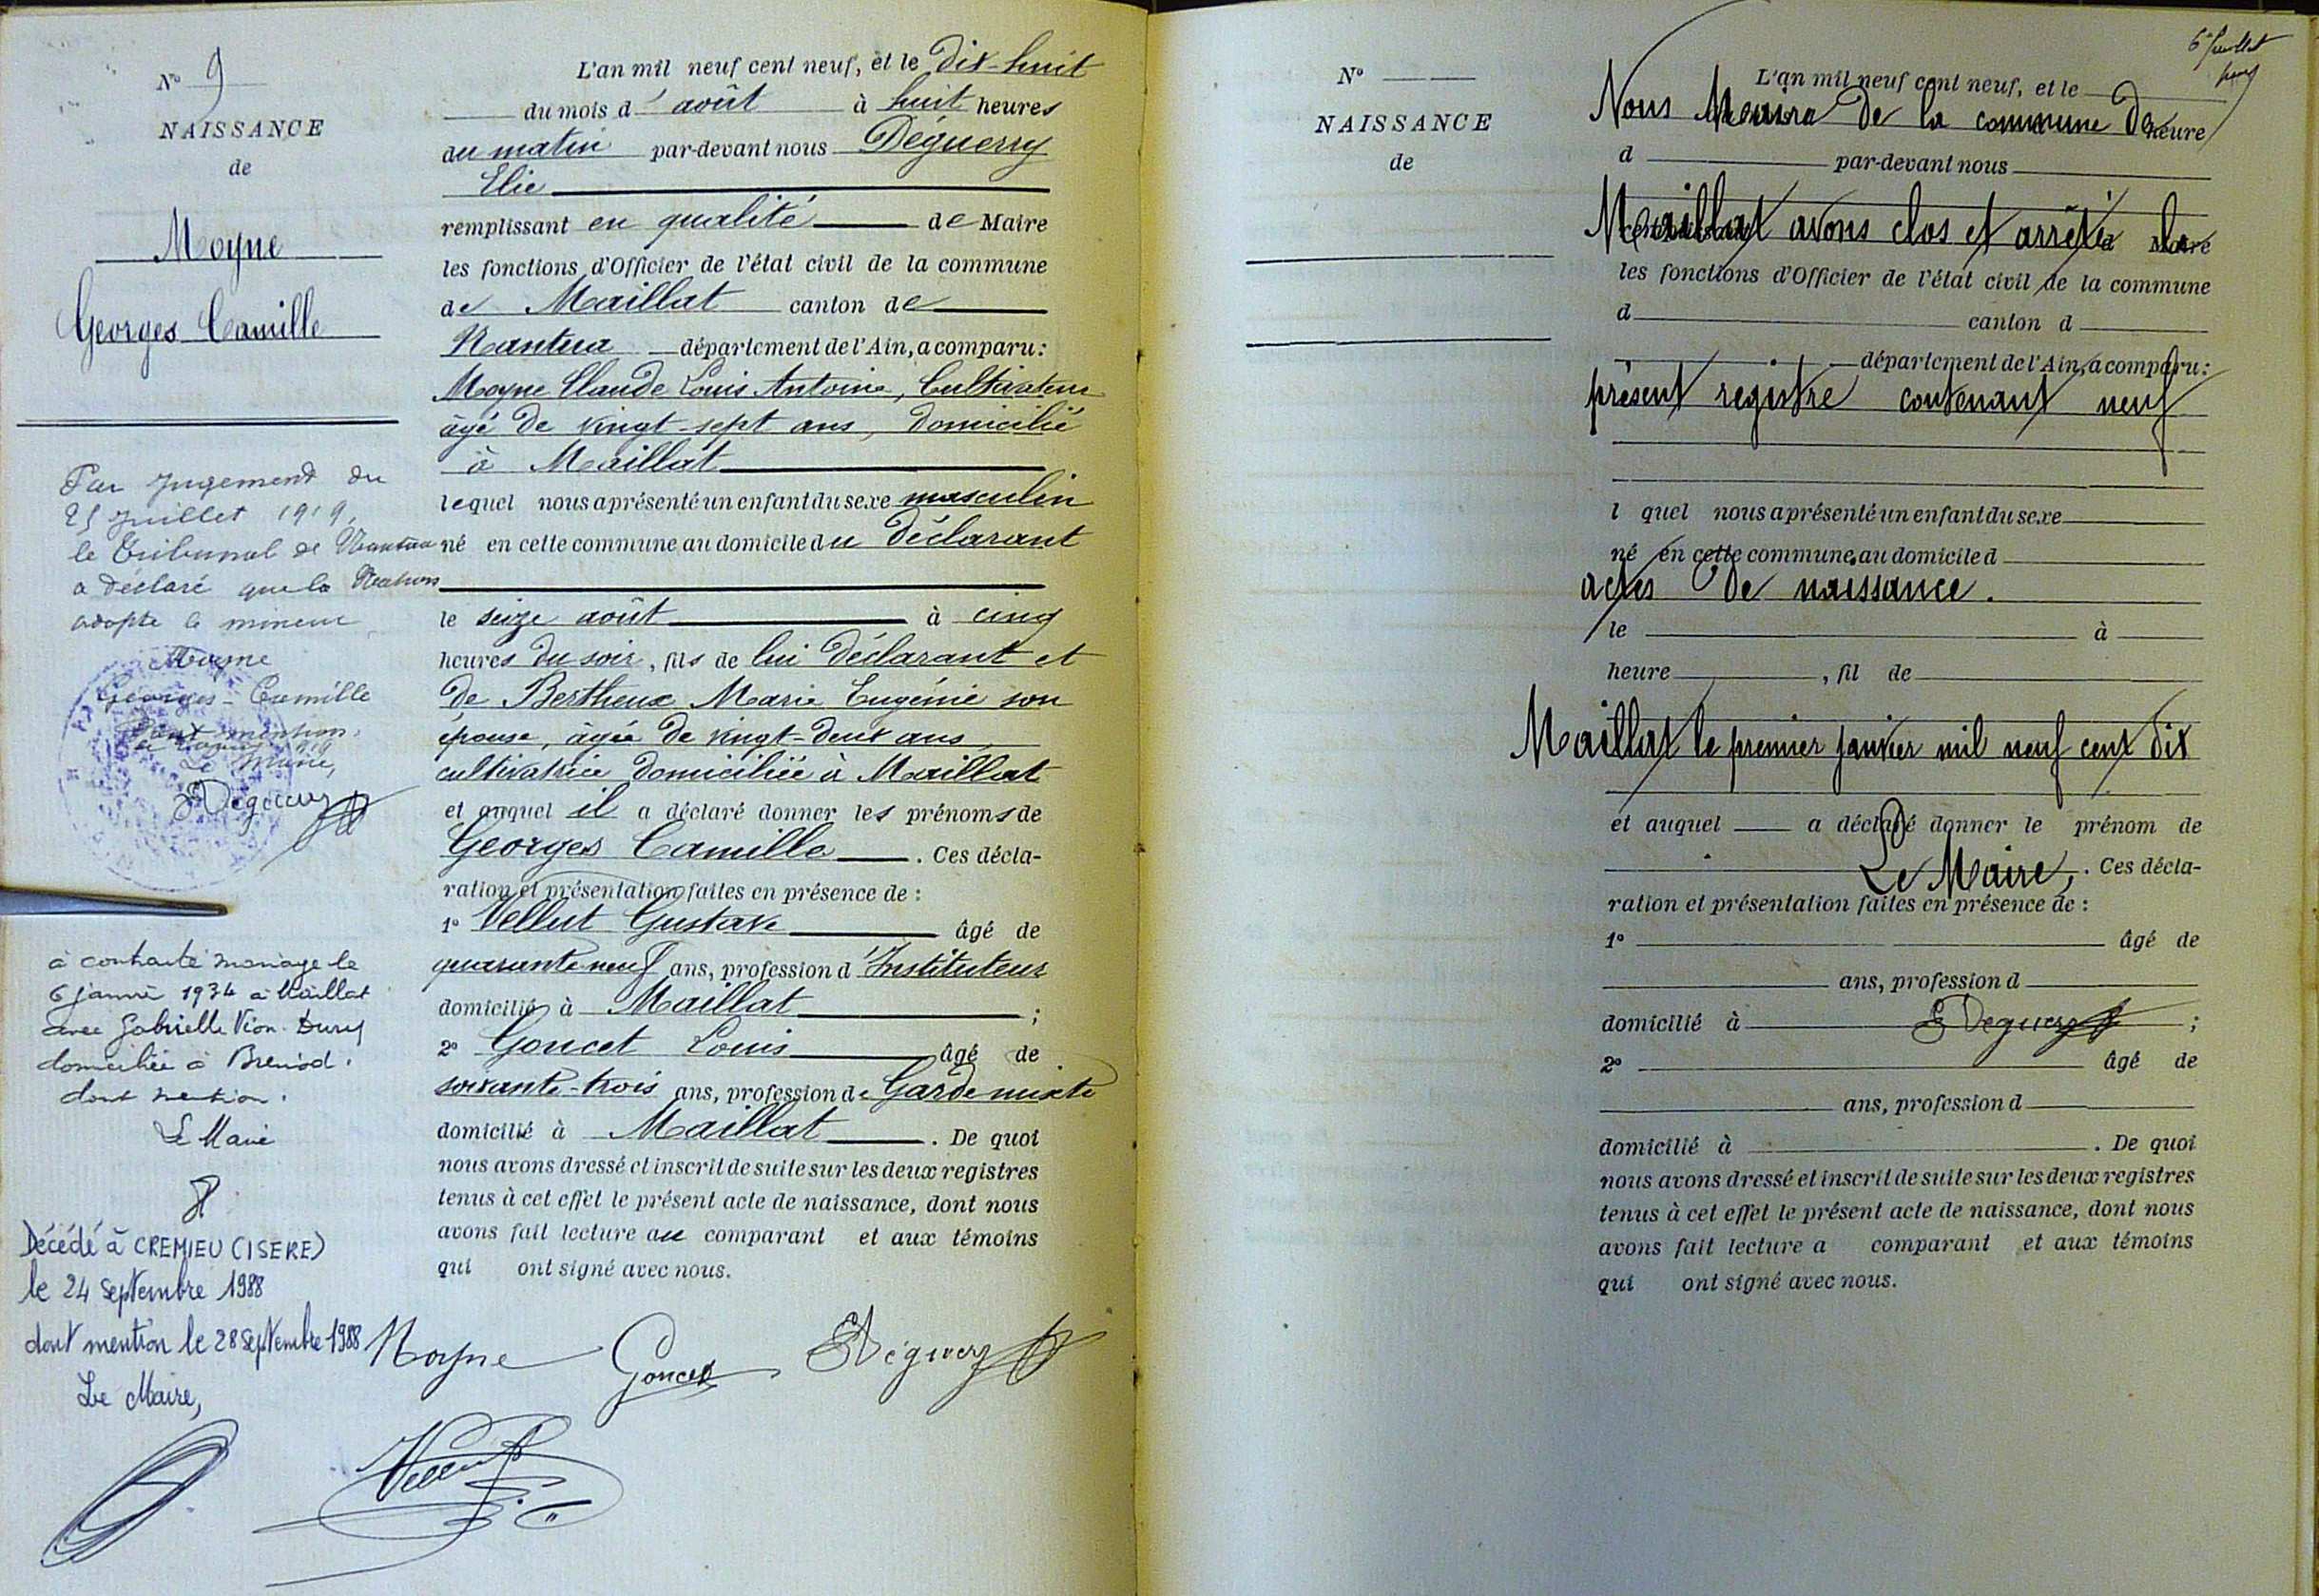 N° 9
NAISSANCE
de
Moyne
Georges Camille
Par jugement du
25 Juillet 1919,
le Tribunal de Nantua
a déclaré que la Nation
adopte le mineur
Moyne
Georges-Camille
Dont mention.
Le Maire,
EDéguerry
à contracté mariage le
6 janvier 1934 à Maillat
avec Gabrielle Vion-Dury
domiciliée à Brénod.
dont mention.
Le Maire
Décédé à CREMIEU (ISERE)
le 24 Septembre 1988
dont mention le 28 Septembre 1988
Le Maire,
L'an mil neuf cent neuf, et le dix-huit
du mois d'août à huit heures
du matin par-devant nous Déguerry
Elie
remplissant en qualité de Maire
les fonctions d'Officier de l'état civil de la commune
de Maillat canton de
Nantua département de l'Ain, a comparu:
Moyne Claude Louis Antoine, Cultivateur
âgé de vingt-sept ans, domicilié
à Maillat
lequel nous a présenté un enfant du sexe masculin
né en cette commune au domicile du déclarant
le seize août à cinq
heures du soir, fils de lui déclarant et
de Bertheux Marie Eugénie son
épouse, âgée de vingt-deux ans,
cultivatrice domiciliée à Maillat
et auquel il a déclaré donner les prénoms de
Georges Camille. Ces décla-
ration et présentation faites en présence de :
1° Vellut Gustave âgé de
quarante-neuf ans, profession d'Instituteur
domicilié à Maillat ;
2° Goucet Louis âgé de
soixante-trois ans, profession de Garde mixte
domicilié à Maillat. De quoi
nous avons dressé et inscrit de suite sur les deux registres
tenus à cet effet le présent acte de naissance, dont nous
avons fait lecture au comparant et aux témoins
qui ont signé avec nous.
Moyne Goucet EDéguerry
Vellut
6e feuillet
N°
NAISSANCE
de
L'an mil neuf cent neuf, et le
Nous Maire de la commune de
heure
d par-devant nous
Maillat avons clos et arrêté le
Maire
les fonctions d'Officier de l'état civil de la commune
d canton d
département de l'Ain, a comparu:
présent registre contenant neuf
l quel nous a présenté un enfant du sexe
né en cette commune au domicile d
actes de naissance.
le à
heure , fil de
Maillat le premier janvier mil neuf cent dix
et auquel a déclaré donner le prénom de
Le Maire, . Ces décla-
ration et présentation faites en présence de :
1° âgé de
ans, profession d
domicilié à EDéguerry ;
2° âgé de
ans, profession d
domicilié à . De quoi
nous avons dressé et inscrit de suite sur les deux registres
tenus à cet effet le présent acte de naissance, dont nous
avons fait lecture a comparant et aux témoins
qui ont signé avec nous.